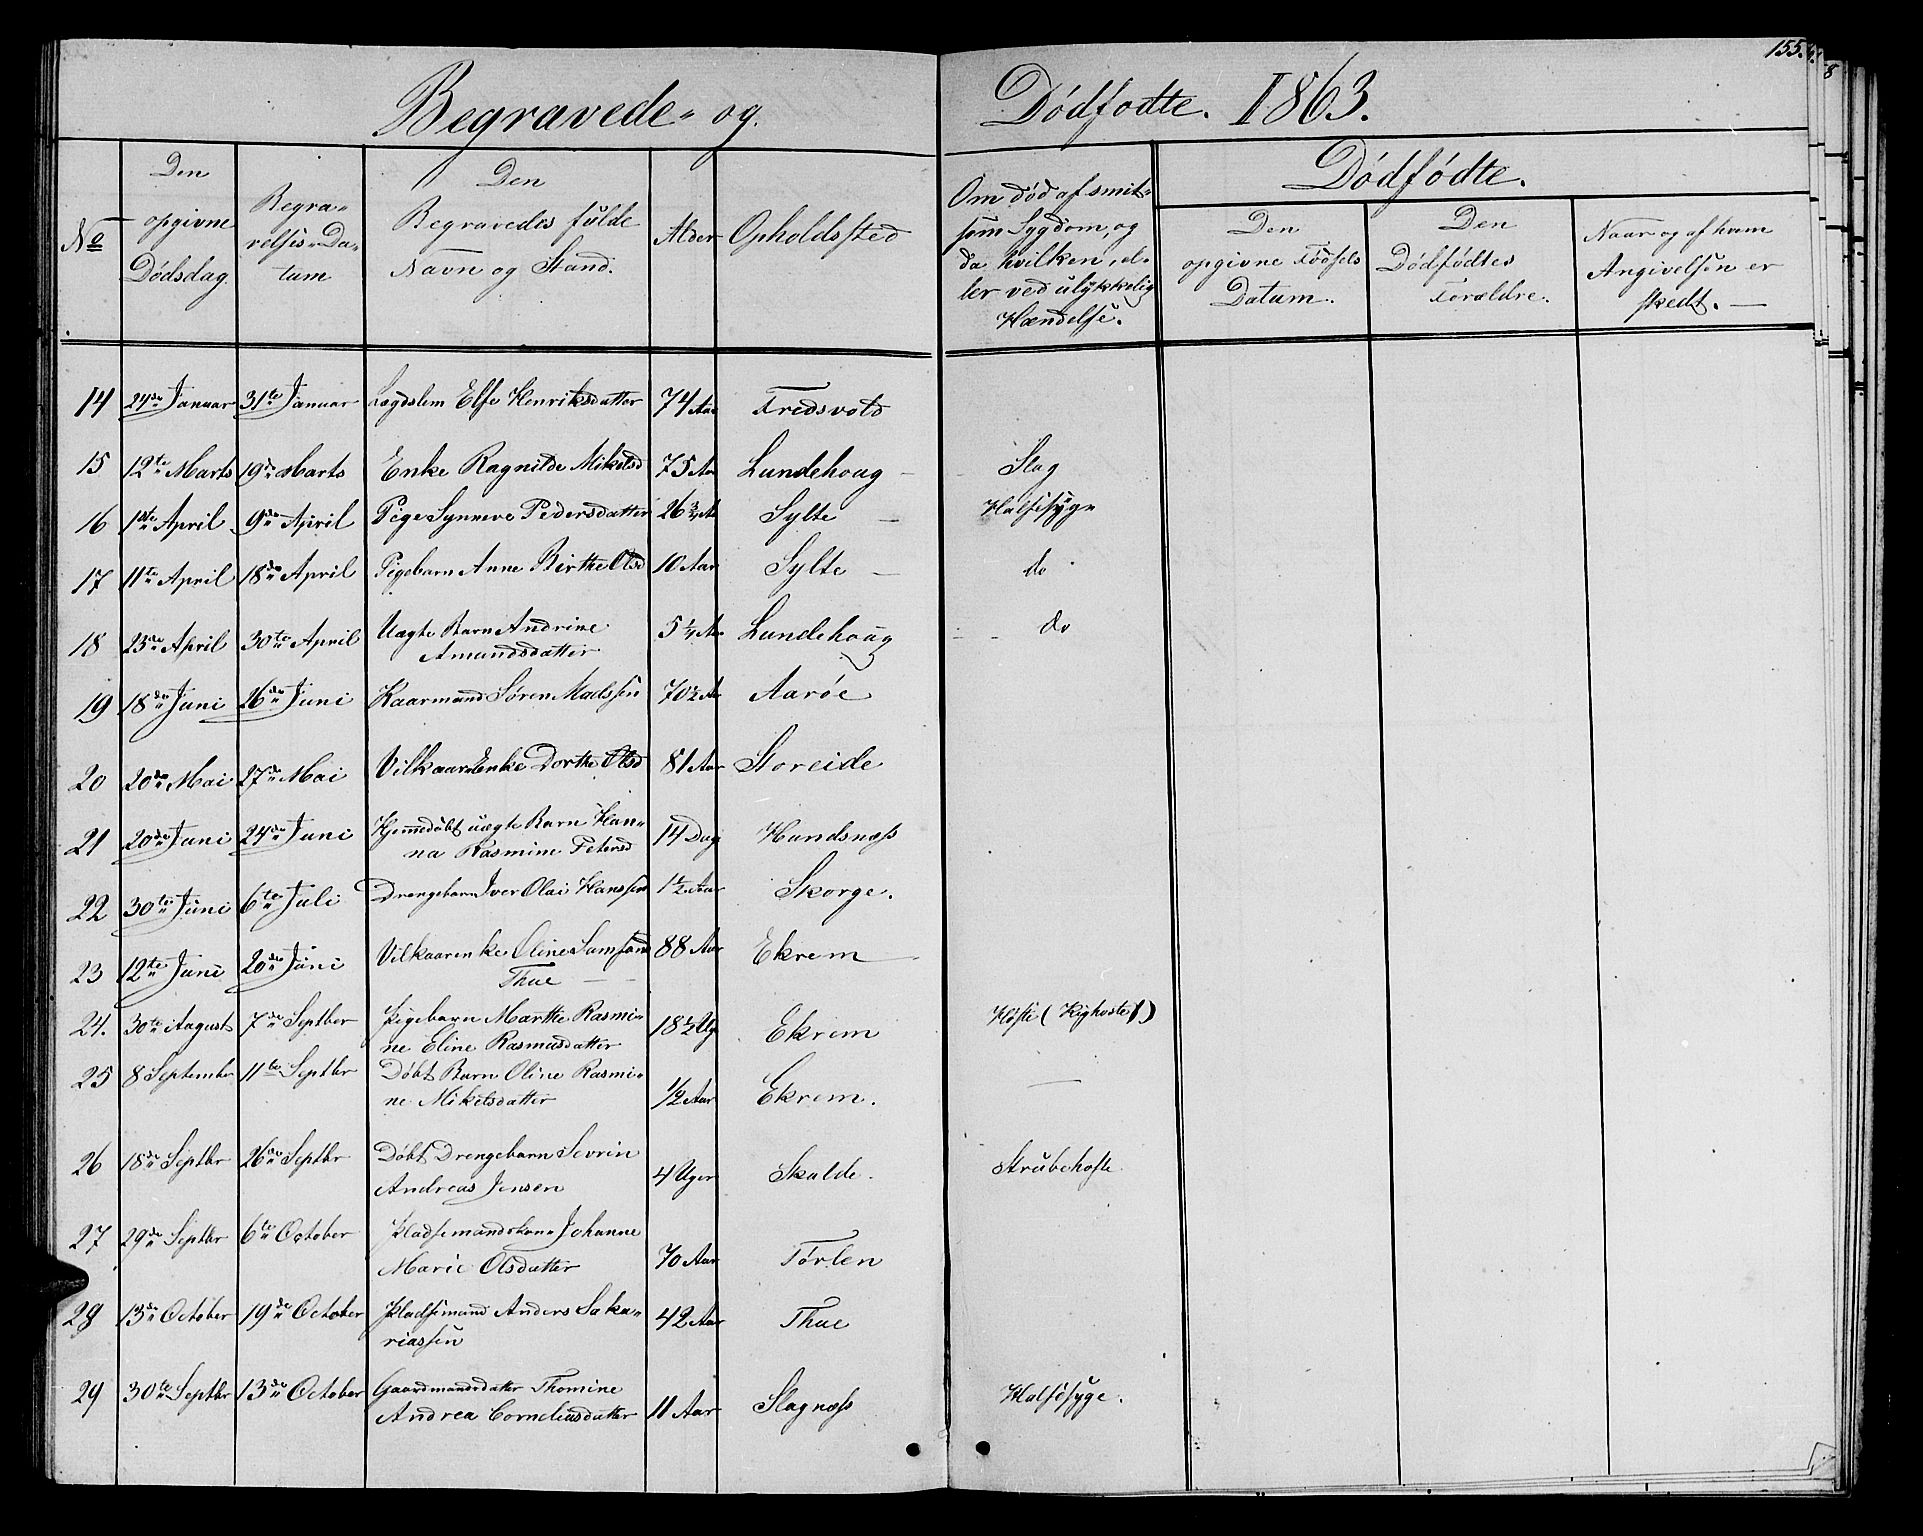 155.
Begravede og Dödfodte. 1863.
No
Den opgivne Dödsdag.
Begravelses-Datum
Den Begravedes fulde Navn og Stand.
Alder
Opholdssted
Om död af smitsom Sygdom, og da hvilken, eller ved ulykkelig Hændelse.
Dödfödte.
Den opgivne Födsels Datum.
Den Dödfödtes Forældre.
Naar og af hvem Angivelsen er skedt.
14 24de Januar 31te Januar Lægdslem Else Henriksdatter 74 Aar Fredsvold
15 12te Marts 19de Marts Enke Ragnilde Mikelsd 75 Aar Lundehoug Slag
16 1ste April 9de April Pige Synneve Pedersdatter 26 3/4 A Sylte Halssyge
17 11te April 18de April Pigebarn Anne Birthe Olsd 10 Aar Sylte do
18 23de April 30te April Uægte Barn Andrine
Amundsdatter 5 1/4 Aar Lundehoug do
19 18de Juni 26de Juni Kaarmand Sören Madssen 70 1/2 A Aaröe
20 20de Mai 27de Mai Vilkaarsenke Dorthe Olsd 81 Aar Storeide
21 20de Juni 24de Juni Hjemmedöbt uægte Barn Han-
na Rasmine Petersd 14 Dag Hundsnæss
22 30te Juni 6te Juli Drengebarn Iver Olai Hanssen 1 1/2 Aar Skorge.
23 12te Juni 20de Juni Vilkaarenke Oline Samsond
Thue 88 Aar Ekrem
24. 30te August 7de Septber Pigebarn Marthe Rasmi-
ne Eline Rasmusdatter 18 1/2 Ug Ekrem Hoste (Kighoste)
25 8 September 11te Septbr Döbt Barn Oline Rasmi-
ne Mikelsdatter 1/2 Aar Ekrem.
26 18de Septbr 26de Septbr Döbt Drengebarn Sevrin
Andreas Jensen 4 Uger Skalde. Strubehoste
27 29de Septbr 6te October Pladsemandskone Johanne
Marie Olsdatter 70 Aar Törlen
28 13de October 19de October Pladsemand Anders Saka-
riassen 42 Aar Thue
29 30te Septbr 13de October Gaardmandsdatter Thomine
Andrea Corneliusdatter 11 Aar Slagnæss Halssyge.